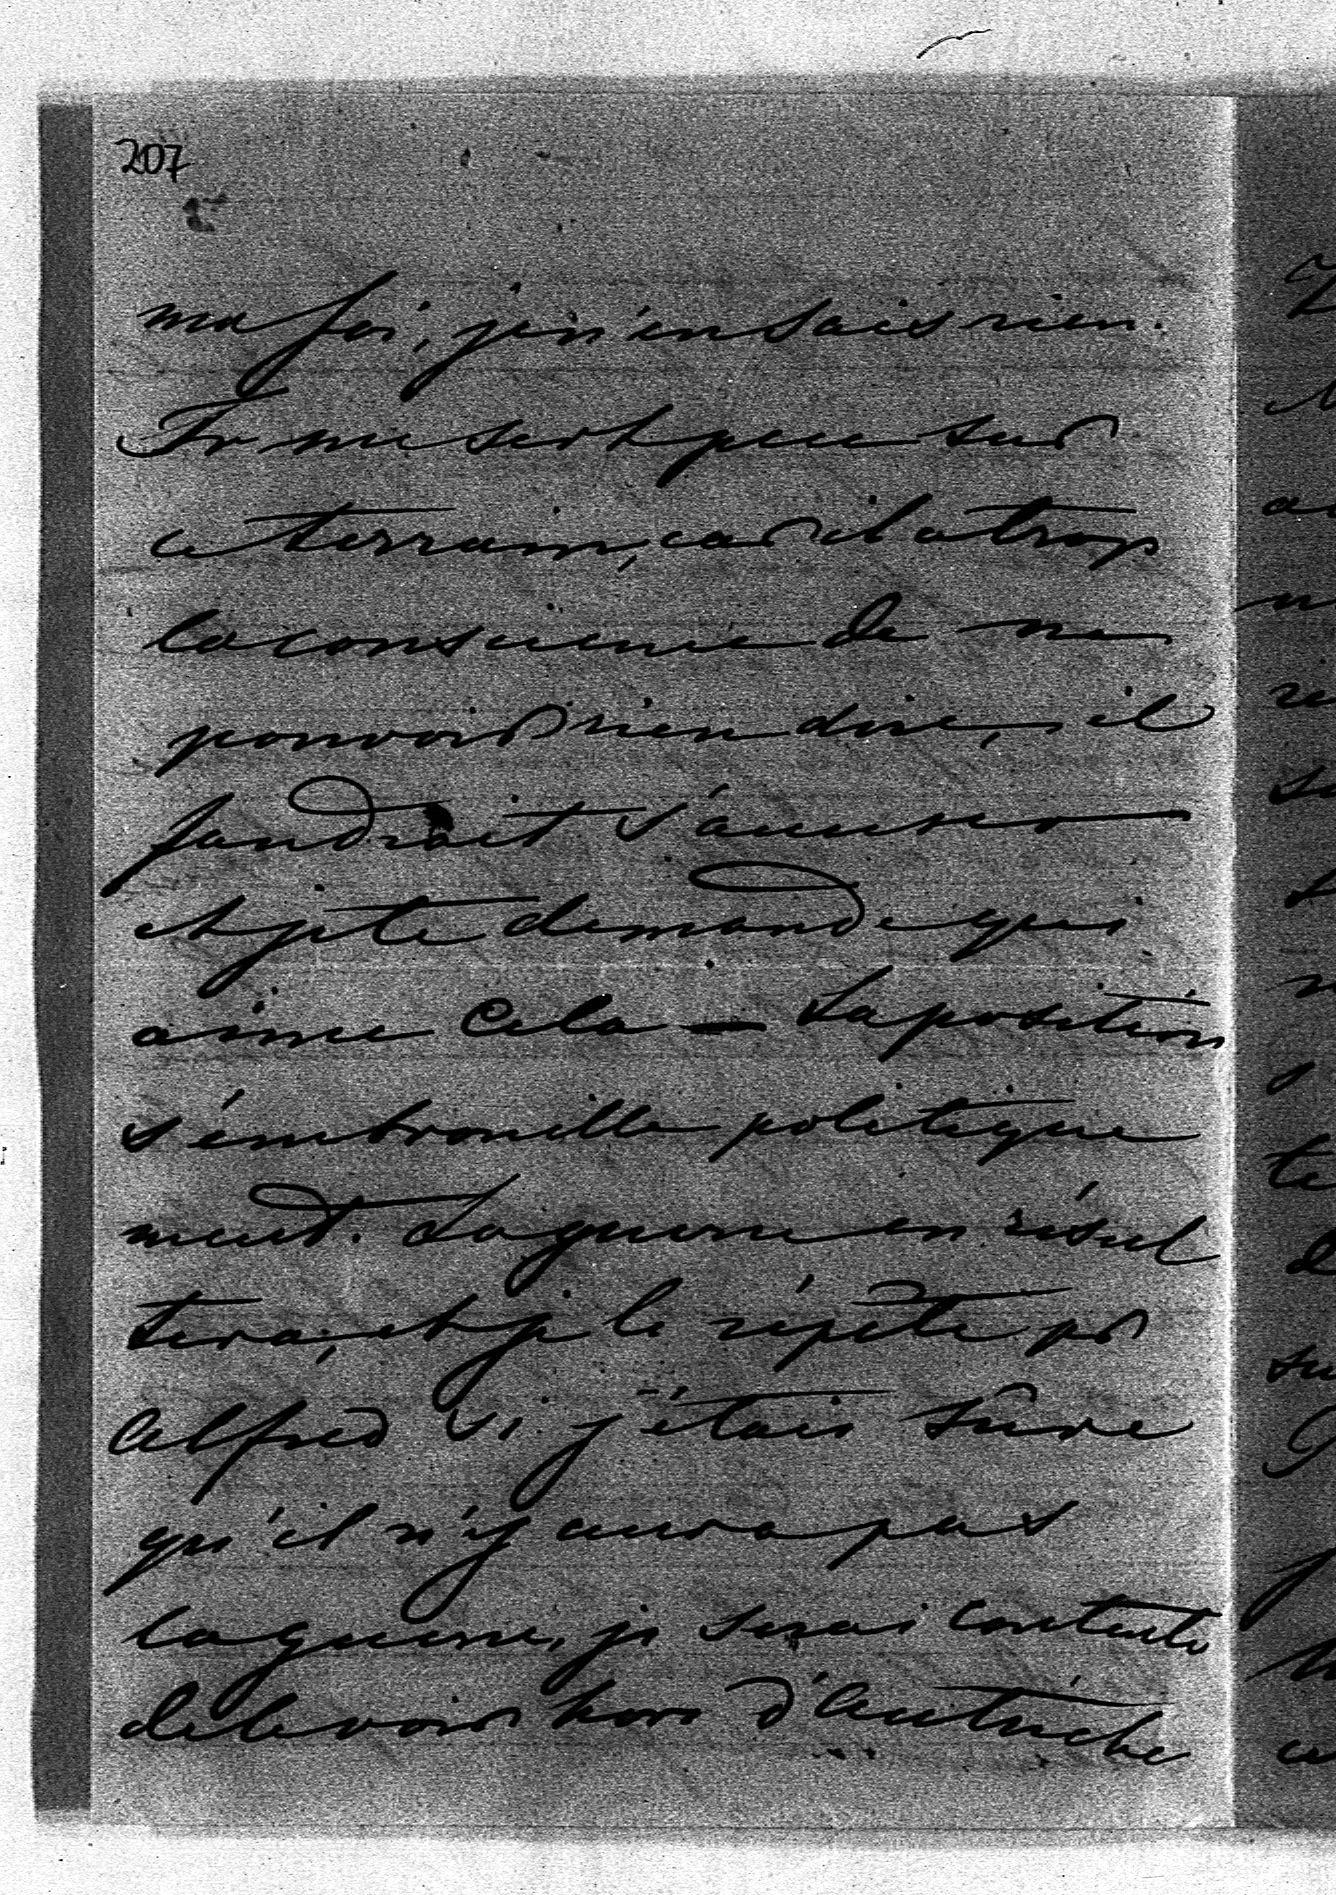 207
ma foi, je n'en sais rien.
Fr me sert peu sur
ce terrain, car il a trop
la conscience de ne
pouvoir rien dire, il
faudrait s'amuser
et je te demande qui
aime cela — La position
s'embrouille politique
ment. La guerre en résul
tera, et je le répète pr
Alfred si j'étais sûre
qu'il n'y aura pas
la guerre, je serai contente
de le voir hors d'Autriche